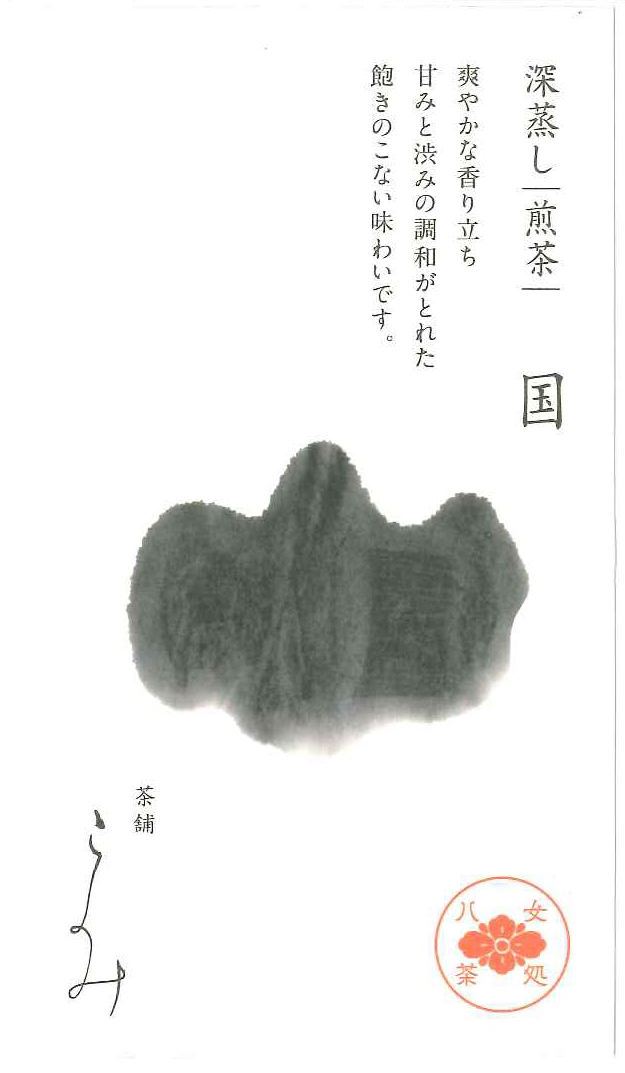 深蒸し|煎茶| 国
爽やかな香り立ち
甘みと渋みの調和がとれた
飽きのこない味わいです。
茶舗
このみ
八女
茶処